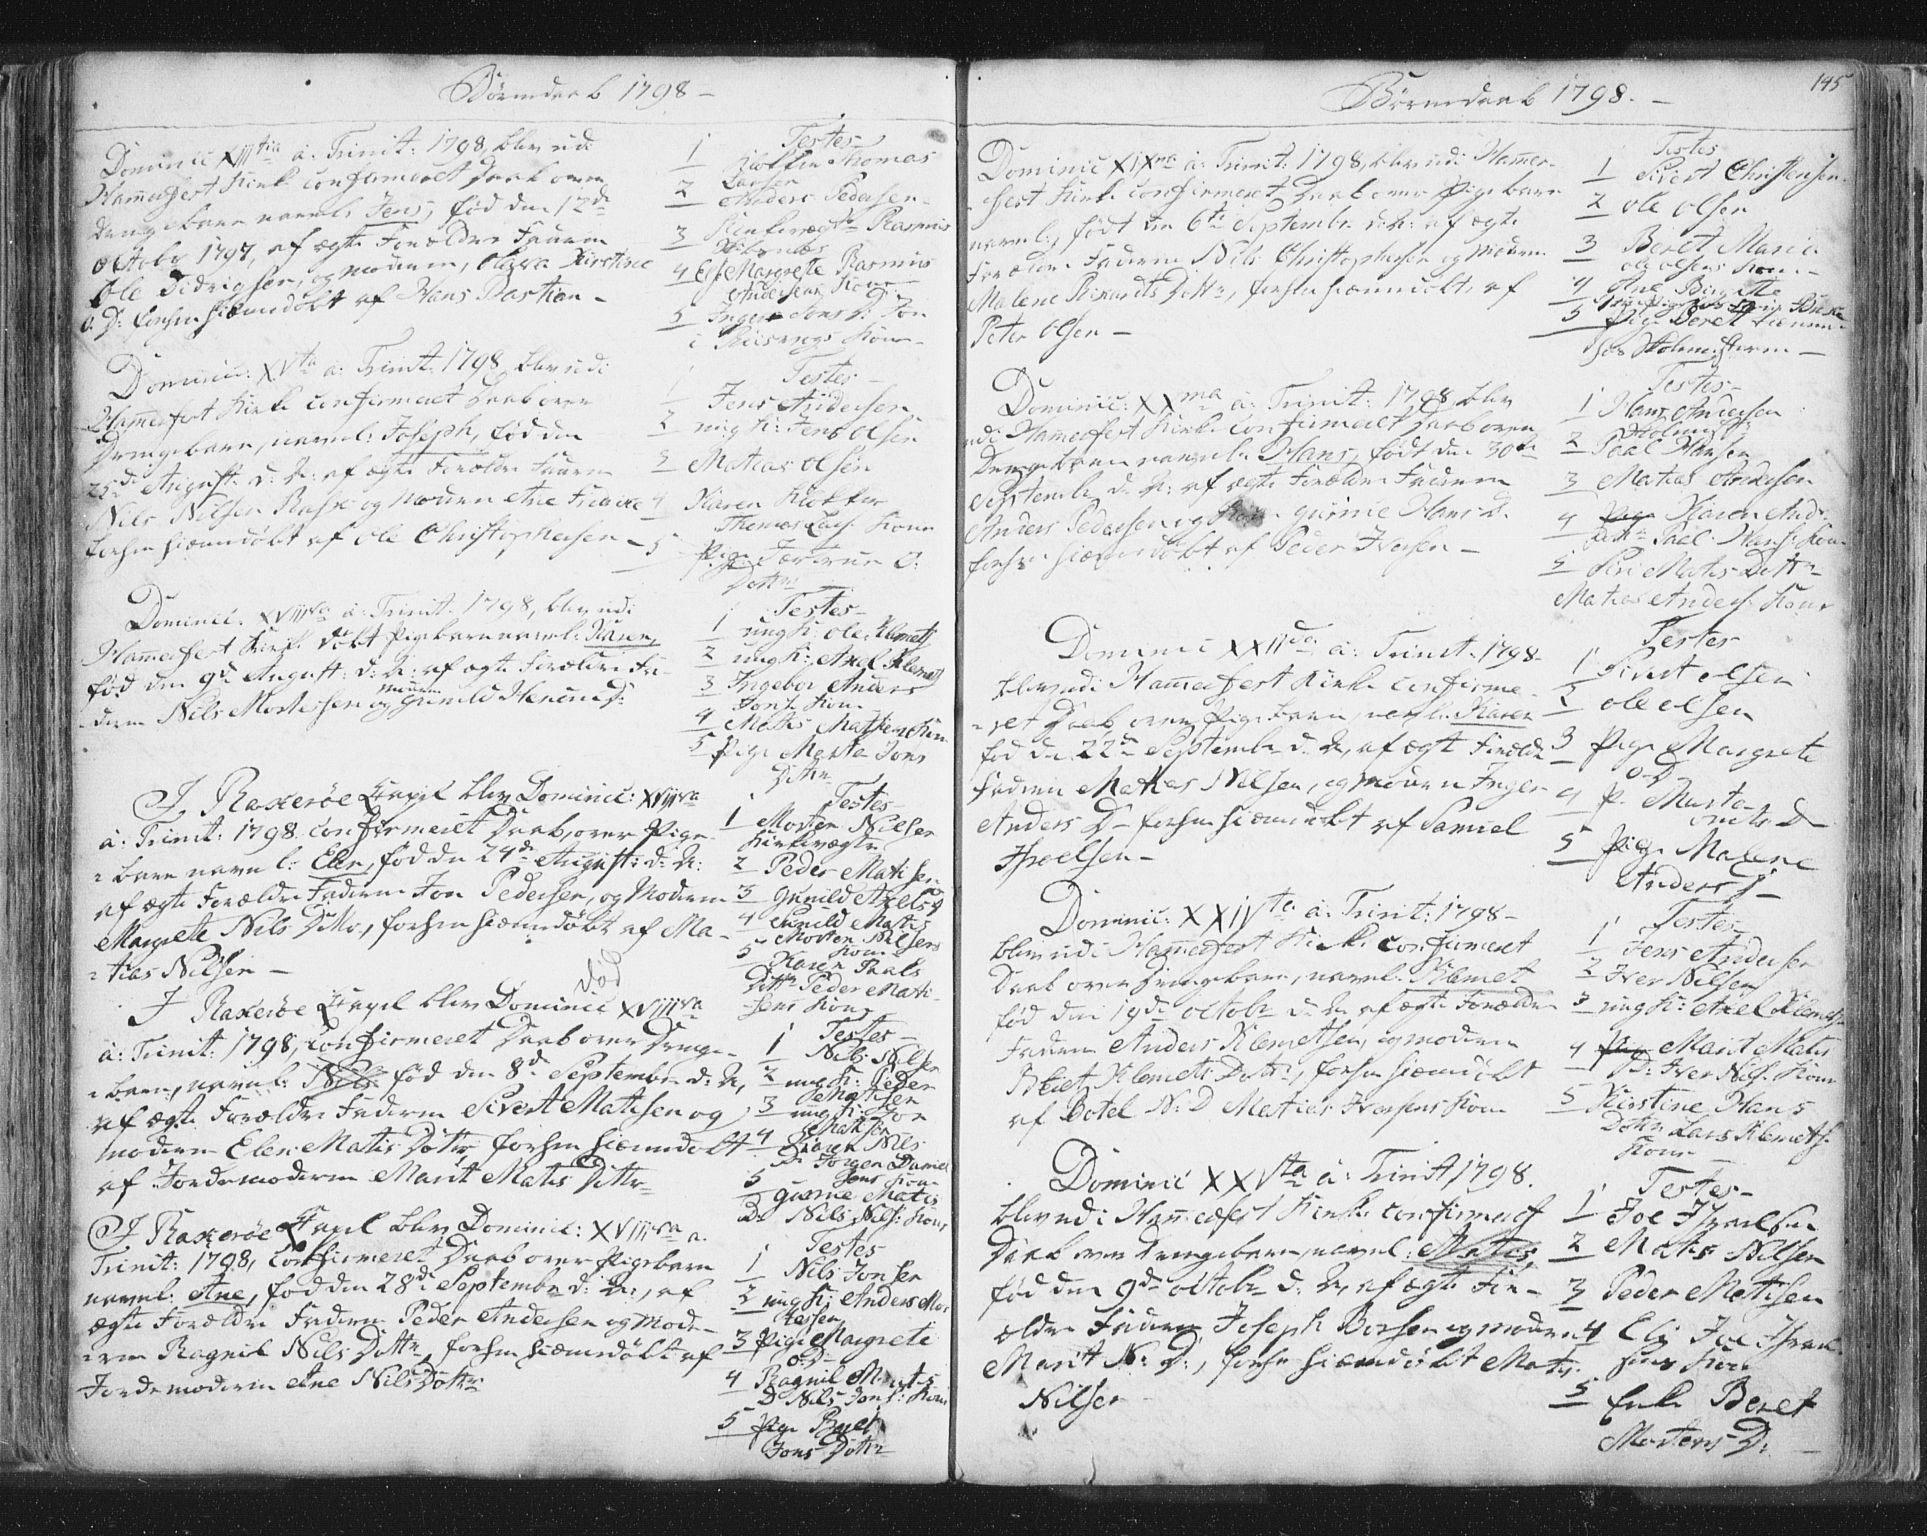 Börnedaab 1798 –
Dominic XIII tia a: Trinit: 1798, blev udi
Hammerfest Kirke confirmeret Daab over
Drengebarn navnl: Jens, fød den 12de
October 1797, af ægte Forældre Faderen
Ole Didrigsen, og moderen, Olava Kirstine
O: D: forhen hiemmedøbt af Hans Bastian –
Testes
1 Thomas
Larsen
2 Anders Pedersen
3 Kirkevægter Rasmus
4 Margrete Rasmus
Andersens Kone
5 Inger Jons D: Jon
i Kone –
Dominic: XV ta a: Trinit: 1798, blev udi
Hammerfest Kirke confirmeret Daab over
Drengebarn, navnl: Joseph, fød den
25de August: d: A: af ægte Forældre Faderen
Nils Nilsen Rask og Moderen Ane
forhen hiemmedøbt af Ole Christophersen –
Testes –
1 Jens Andersen
2 ungk: Jens Olsen
3 Matias Olsen
4 Karen
Thomas Lars: Kone
5 Pige O:
Dottr
Dominic: XVIII va a: Trinit: 1798, blev udi
Hammerfest Kirke døbt Pigebarn navnl: Karen,
fød den 9de August: d: A: af ægte Forældre Fa-
deren Nils Mortensen og moderen Gunild Henrics D:
Testes –
1 ungk: Ole Klemets:
2 ungk: Axel Klemets:
3 Ingebor Anders
Jons: Kone
4
5 Pige Merta Jons
Dottr
I Raxeröe Capel blev Dominic: XVIII va
a: Trinit: 1798 confirmeret Daab, over Pige-
barn navnl: Elen, fød den 24de August: d: A:
af ægte Forældre Faderen Jon Pedersen, og Moderen
Margrete Nils Dottr, forhen hiemmedøbt af Ma-
tias Nilsen –
Testes –
1 Morten Nilsen
Kirkevægter
2 Peder Matisen
3 Gunild Axels D
4 Gunild Matis
Morten Nilsens
Kone
5 Karen Paals
Dottr Peder Mati-
sens Kone
død
I Raxeröe Capel blev Dominic XVIII va
a: Trinit: 1798, confirmeret Daab over Drenge-
barn, navnl: Nils fød den 8de September d: A,
af ægte Forældre Faderen Sivert Matisen og
moderen Elen Matis Dottr, forhen hiemmedøbt
af Jordemoderen Marit Matis Dottr
Testes –
1 Nils Nilsen
2 ungk: Peder
Matisen
3 ungk: Jon
Matisen
4 Karen Nils
D: Jørgen Daniel-
sens Kone
5 Gurine Matis
D: Nils Nils: Kone
I Raxeröe Capel blev Dominic: XVIII va a.
Trinit: 1798, confirmeret Daab over Pigebarn
navnl: Ane, fød den 28de September d: A:, af
ægte Forældre Faderen Peder Andersen og Mode-
ren Ragnil Nils Dottr, forhen hiemmedøbt af
Jordemoderen Ane Nils Dottr
Testes
1 Nils Jonsen
2 ungk: Anders Mor-
tensen
3 Pige Margrete
O: D:
4 Ragnil Monts
D Nils Jons: Kone
5 Pige Beret
Jons Dottr
Börnedaab 1798. –
145
Dominic XIX na a: Trinit: 1798, blev udi Hammer-
fest Kirke confirmeret Daab over Pigebarn
navnl:, født den 6te September d: A: af ægte
Forældre Faderen Nils Christophersen og Moderen
Malene Rikards Dottr, forhen hiemmedøbt, af
Peter Olsen –
Testes
1 Sivert Christensen
2 Ole Olsen
3 Beret Maria
Ole Olsens Kone –
4 Ane
5 Pige Beret
hos –
Dominic: XX ma a: Trinit: 1798, blev
udi Hammerfest Kirke confirmeret Daab over
Drengebarn navnl: Hans, født den 30te
September d: A: af ægte Forældre Faderen
Anders Pedersen og Gurine Hans D.
forhen hiemmedøbt af Peder Iversen –
Testes –
1 Hans Andersen
2 Paal Hansen
3 Matias Andersen
4 Karen And:
Dottr Paal Hans: Kone
5 Siri Matis Dottr
Matias Anders: Kone
Dominic XXII da a: Trinit: 1798
blev udi Hammerfest Kirke confirme-
ret Daab over Pigebarn, navnl: Karen
fød den 22de September d: A, af ægte Forældre
Faderen Matias Nilsen, og Moderen Inger
Anders D forhen hiemmedøbt af Samuel
Israelsen –
Testes
1 Sivert Olsen
2 Ole Olsen
3 Pige Margrete
O: D
4 P. Marta
D
5 Pige Malene
Anders D –
Dominic: XXIV ta a: Trinit: 1798 –
blev udi Hammerfest Kirke confirmeret
Daab over Drengebarn, navnl: Klemet
fød den 19de Octobr d: A af ægte Forældre
Faderen Anders Klemetsen, og moderen
Klemets Dottr, forhen hiemmedøbt
af Botel N: D Matias Iversens Kone
Testes
1 Jens Andersen
2 Iver Nilsen
3 ungk: Axel Klemets:
4 Marit Matis
D: Iver Nils: Kone
5 Kirstine Hans
Dottr Lars Klemets:
Kone
Dominic XXV ta a: Trinit 1798.
blev udi Hammerfest Kirke confirmeret
Daab over Drengebarn, navnl: Matis,
fød den 9de Octobr d: A, af ægte For-
ældre Faderen Joseph Borsen og moderen
Marit N: D:, forhen hiemmedøbt Matis
Nilsen
Testes –
1 Joe Israelsen
2 Matis Nilsen
3 Peder Matisen
4 Eli Joe Israel-
sens Kone
5 Enke Beret
Mortens D: –